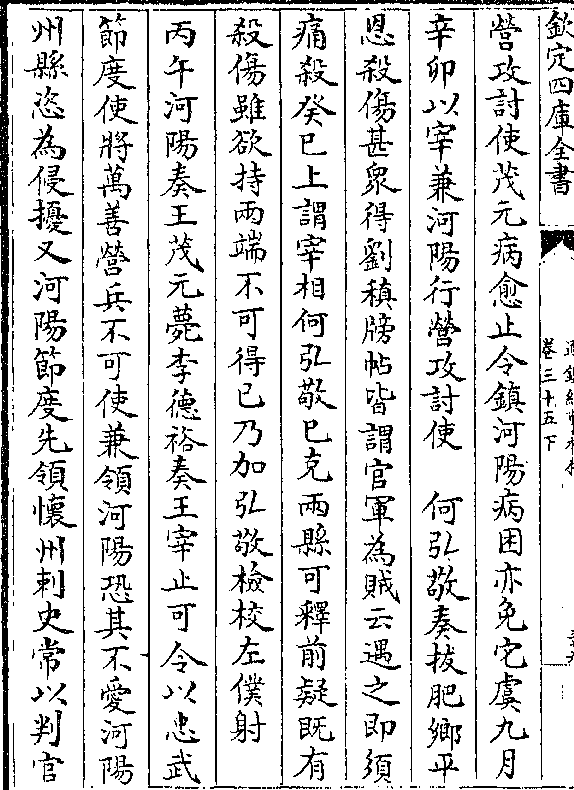 欽定四庫全書
卷三十五下
營攻討使茂元病愈止令鎮河陽病困亦免它虞九月
辛卯以宰兼河陽行營攻討使　何弘敬奏拔肥鄉平
恩殺傷甚衆得劉稹牓帖皆謂官軍為賊云遇之即須
痛殺癸巳上謂宰相何弘敬已克兩縣可釋前疑既有
殺傷雖欲持兩端不可得已乃加弘敬檢校左僕射
丙午河陽奏王茂元薨李德裕奏王宰止可令以忠武
節度使將萬善營兵不可使兼領河陽恐其不愛河陽
州縣恣為侵擾又河陽節度先領懷州刺史常以判官